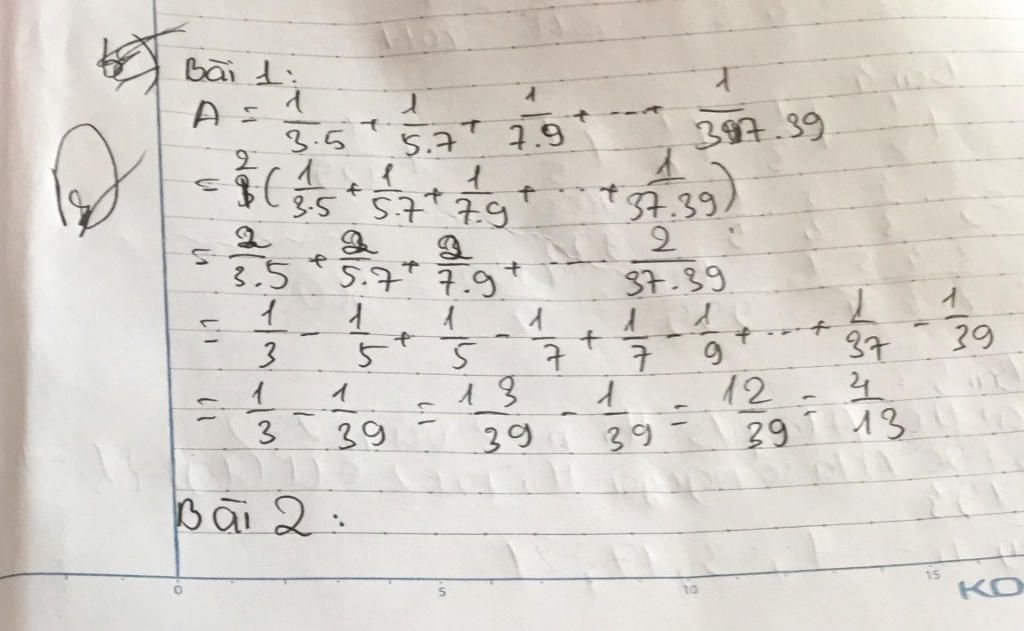 Bài 1:
A = 1/3.5 + 1/5.7 + 1/7.9 + ... + 1/37.39
= 2(1/3.5 + 1/5.7 + 1/7.9 + ... + 1/37.39)
= 2/3.5 + 2/5.7 + 2/7.9 + ... 2/37.39
= 1/3 - 1/5 + 1/5 - 1/7 + 1/7 - 1/9 + ... + 1/37 - 1/39
= 1/3 - 1/39 = 13/39 - 1/39 = 12/39 = 4/13
Bài 2:
0 5 10 15 KO